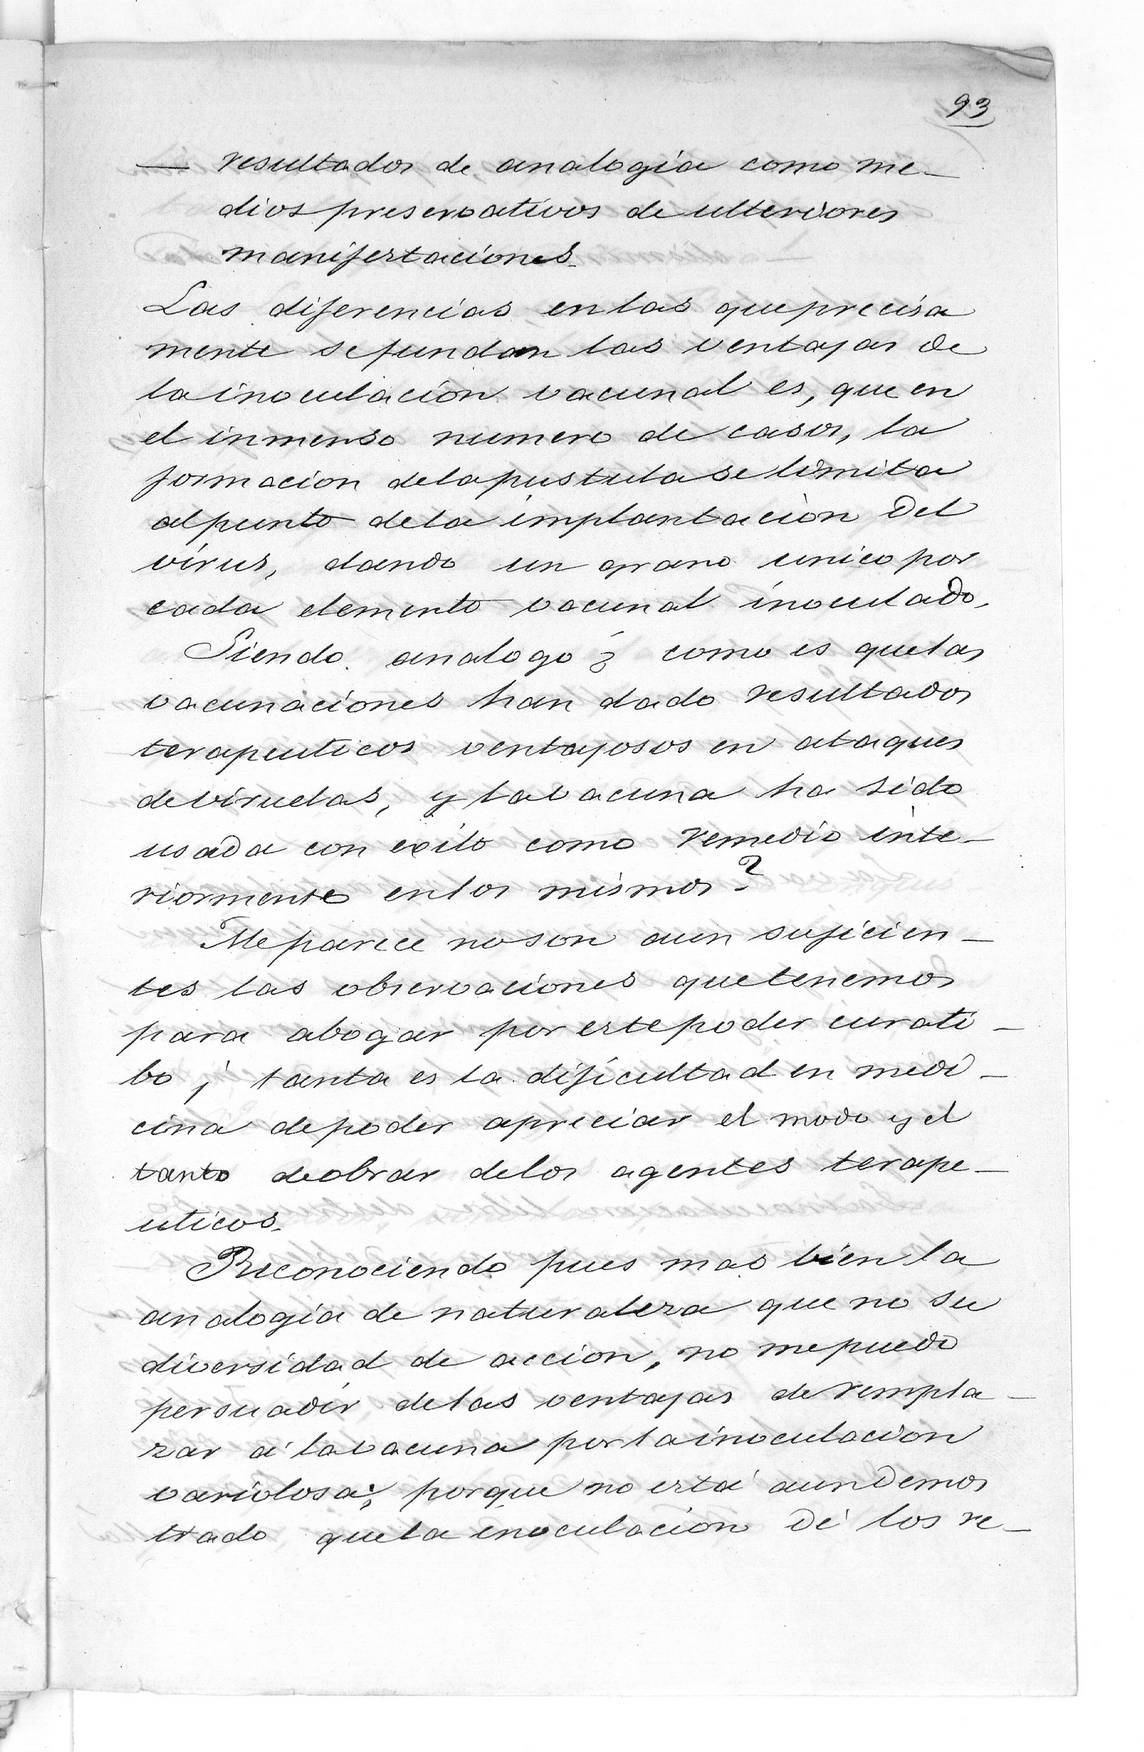 93
— resultados de analogia como me-
dios preservativos de ulteriores
manifestaciones.
Las diferencias en las que precisa
mente se fundan las ventajas de
la inoculación vacunal es, que en
el inmenso numero de casos, la
formacion de la pustula se limita
al punto de la implantación del
vírus, dando un grano unico por
cada elemento vacunal inoculado.
Siendo analogo ¿ como es que las
vacunaciones han dado resultados
terapeuticos ventajosos en ataques
de viruelas, y la vacuna ha sido
usada con exito como remedio inte-
riormente en los mismos?
Me parece no son aun suficien-
tes las observaciones que tenemos
para abogar por este poder curati-
bo ¡ tanta es la dificultad en medi-
cina de poder apreciar el modo y el
tanto de obrar de los agentes terape-
uticos.
Reconociendo pues mas bien la
analogia de naturaleza que no su
diversidad de accion, no me puedo
persuadir de las ventajas de rempla-
zar á la vacuna por la inoculacion
variolosa; porque no está aun demos
trado que la inoculacion dé los re-